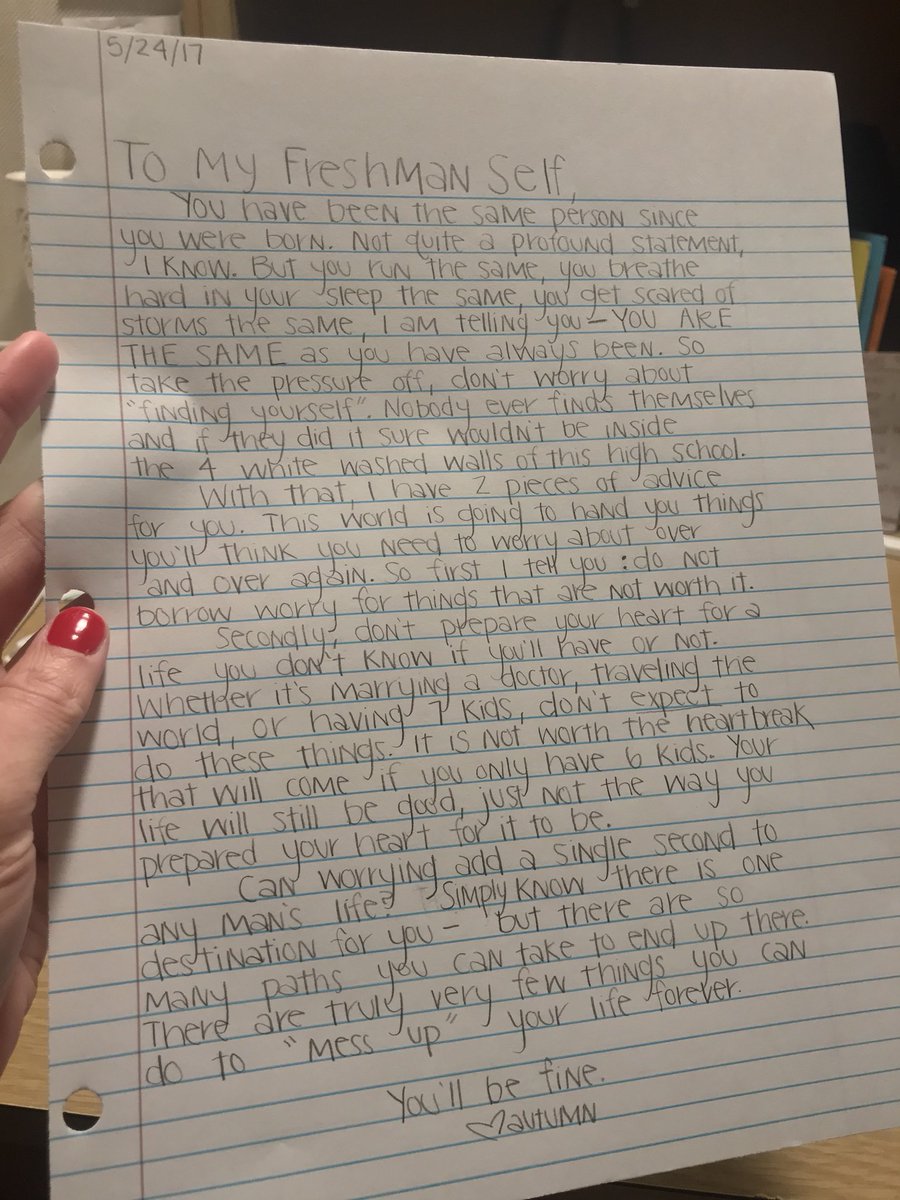 5/24/17
To My Freshman Self,
You have been the same person since
you were born. Not quite a profound statement,
I know. But you run the same, you breathe
hard in your sleep the same, you get scared of
storms the same, I am telling you — YOU ARE
THE SAME as you have always been. So
take the pressure off, don't worry about
"finding yourself". Nobody ever finds themselves
and if they did it sure wouldn't be inside
the 4 white washed walls of this high school.
With that, I have 2 pieces of advice
for you. This world is going to hand you things
you'll think you need to worry about over
and over again. So first I tell you: do not
borrow worry for things that are not worth it.
Secondly, don't prepare your heart for a
life you don't know if you'll have or not.
Whether it's marrying a doctor, traveling the
world, or having 7 kids, don't expect to
do these things. It is not worth the heartbreak
that will come if you only have 6 kids. Your
life will still be good, just not the way you
prepared your heart for it to be.
Can worrying add a single second to
any man's life? Simply know there is one
destination for you — but there are so
many paths you can take to end up there.
There are truly very few things you can
do to "mess up" your life forever.
You'll be fine.
♡autumn